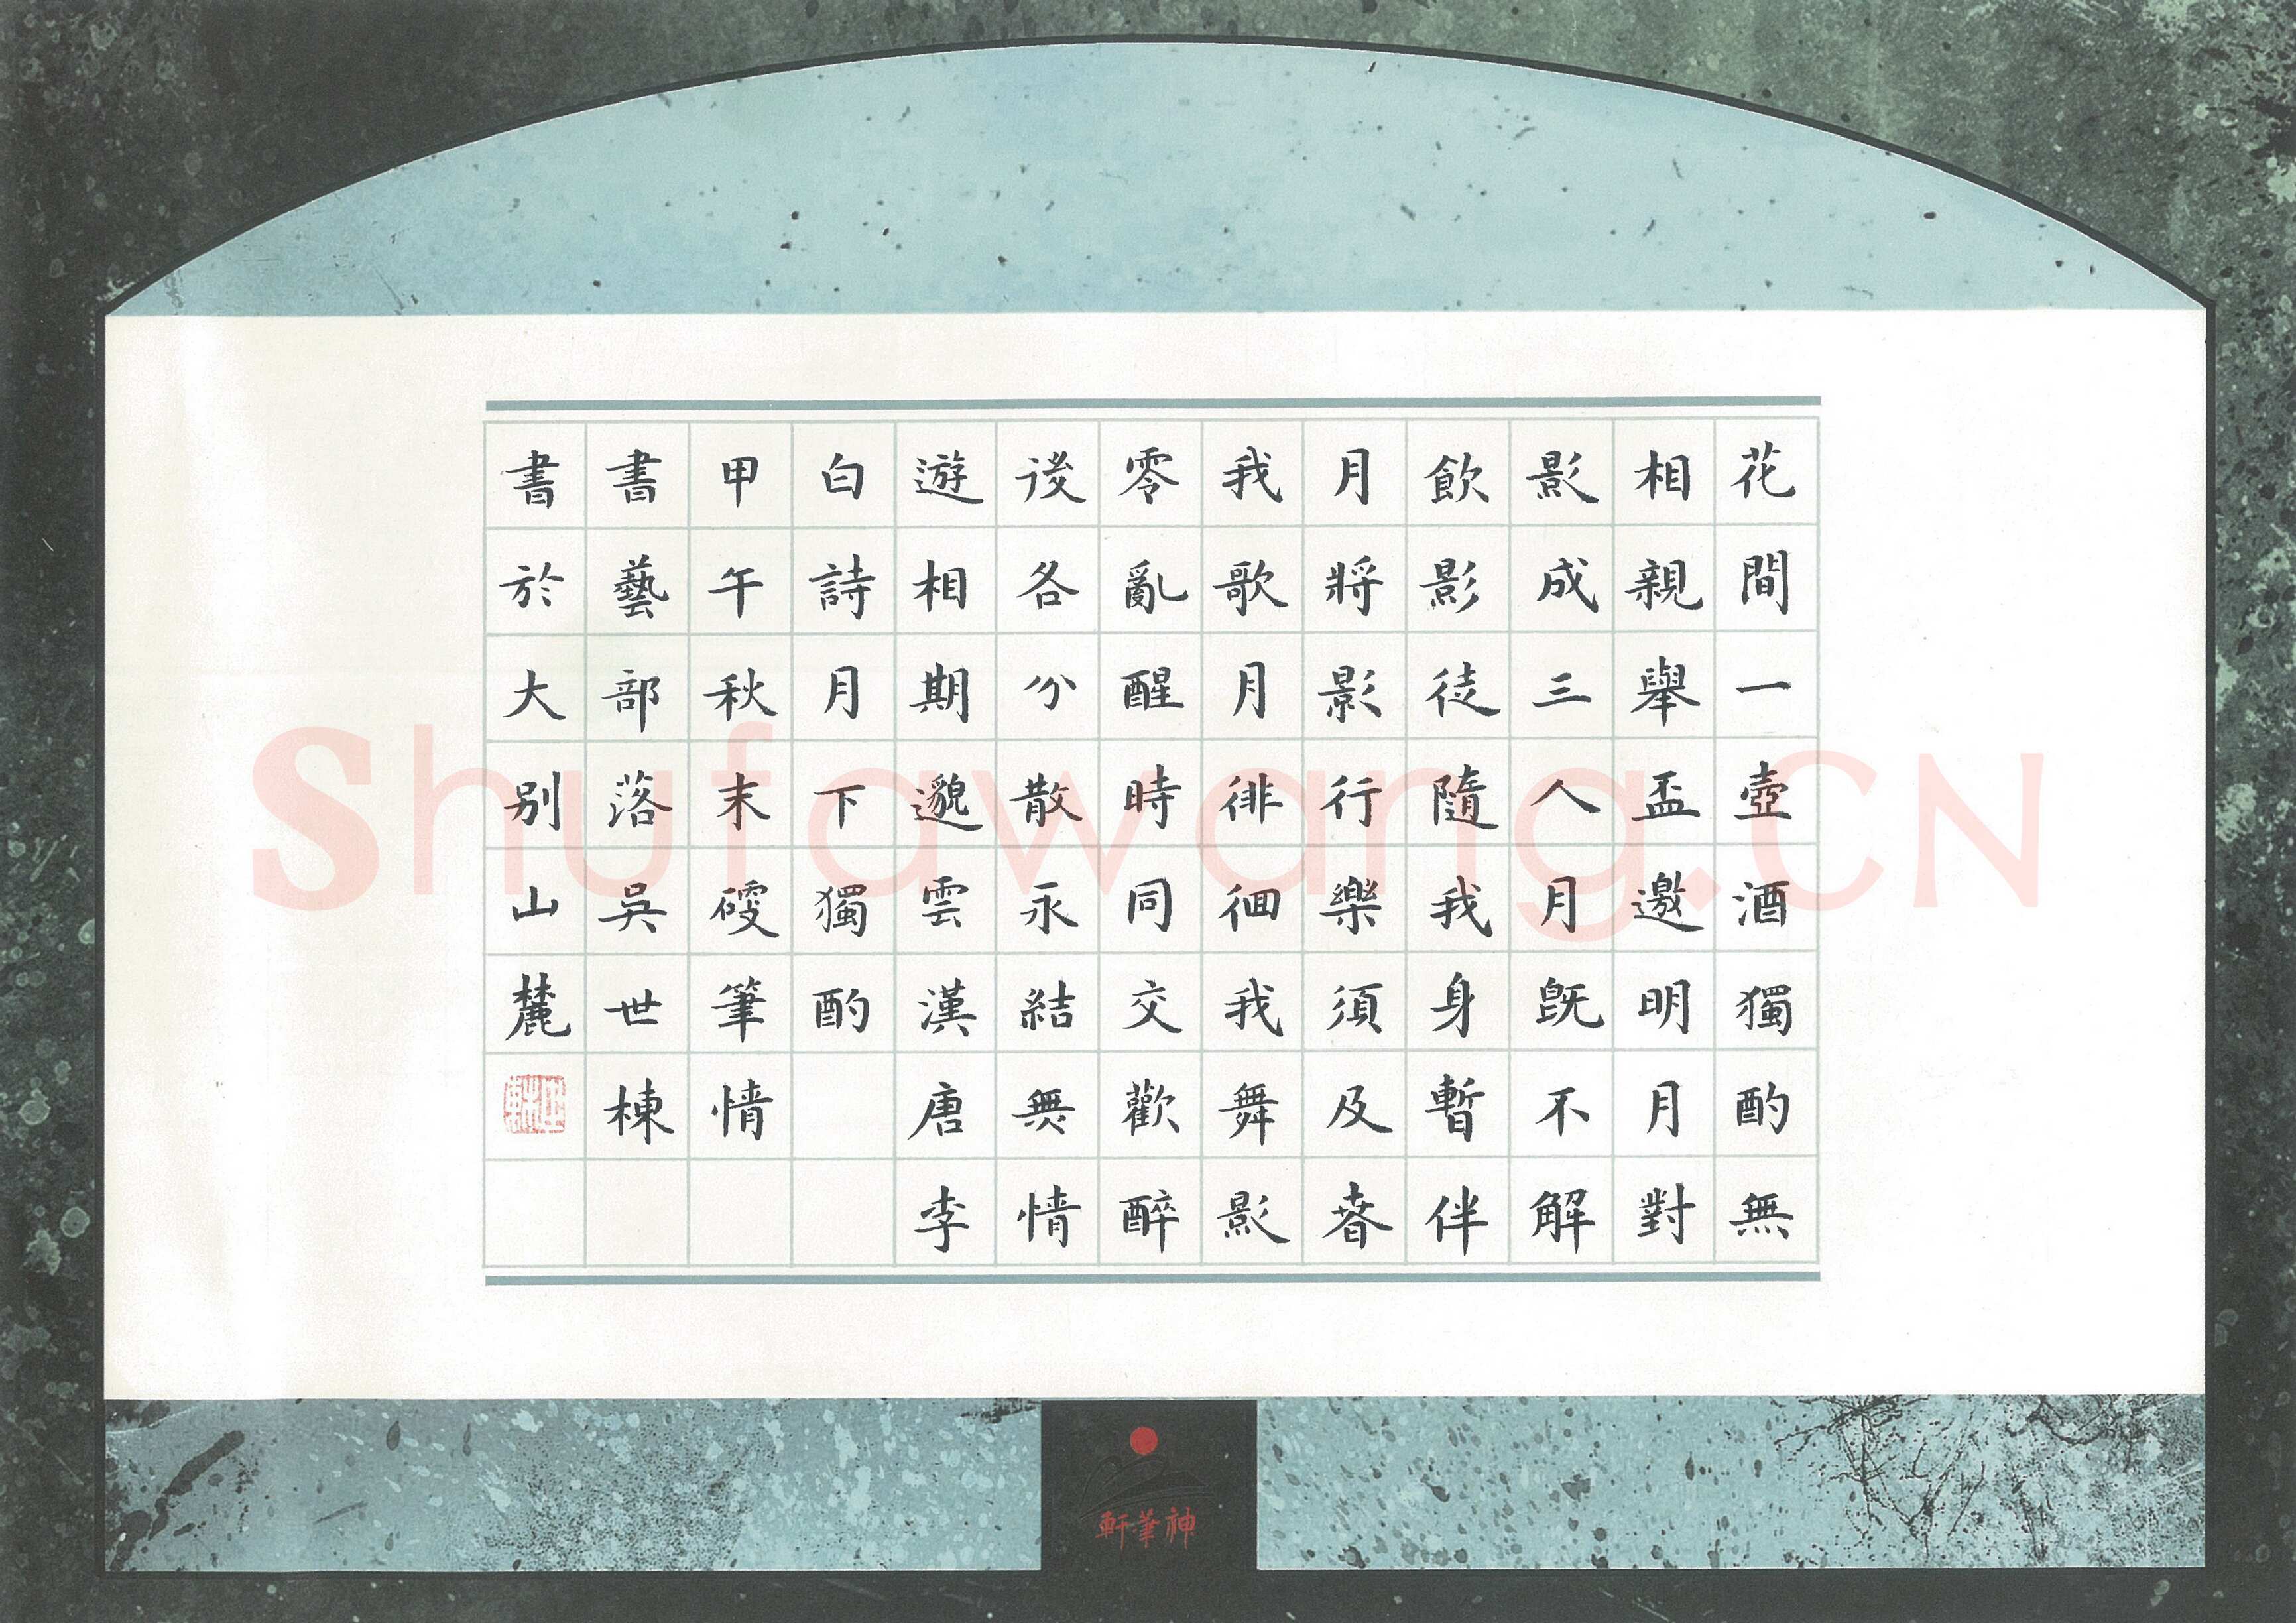 花間一壺酒獨酌無
相親舉盃邀明月對
影成三人月既不解
飲影徒隨我身暫伴
月將影行樂須及春
我歌月徘徊我舞影
零亂醒時同交歡醉
後各分散永結無情
遊相期邈雲漢唐李
白詩月下獨酌
甲午秋末硬筆情
書藝部落吳世棟
書於大別山麓
神筆軒
Shufawang.CN